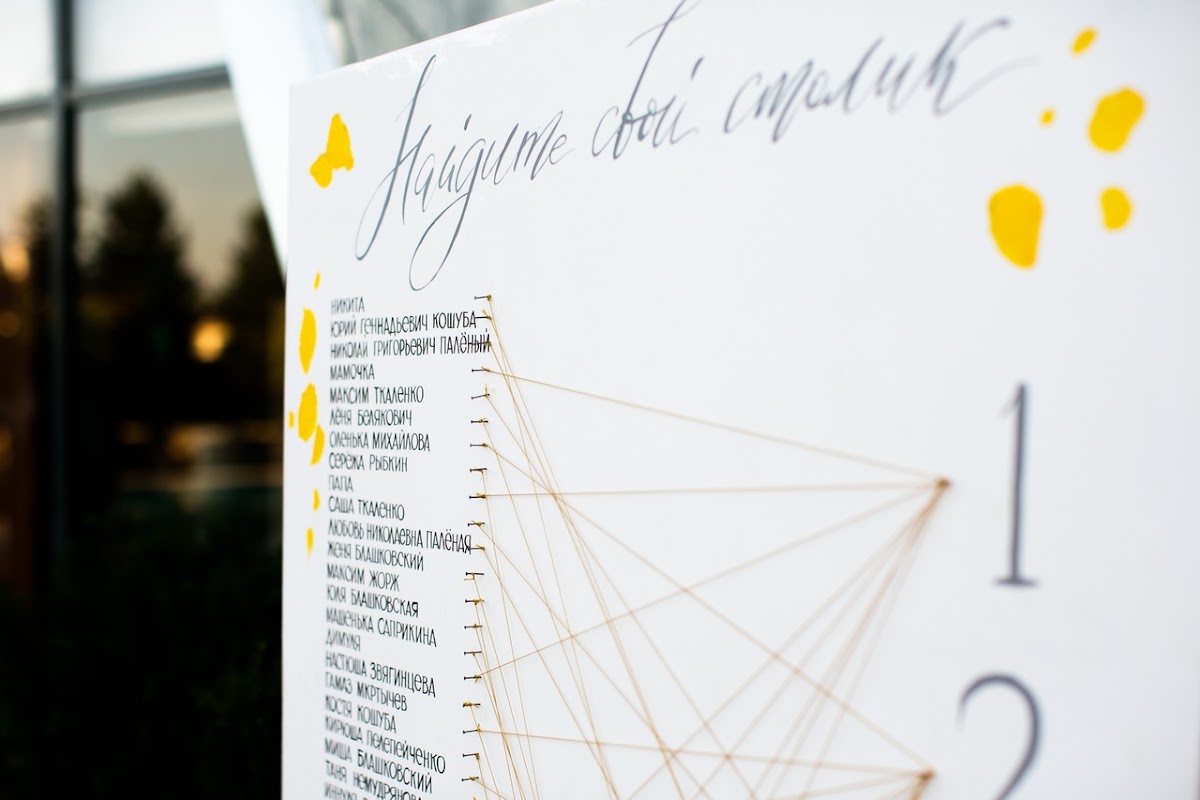 Найдите свой столик
НИКИТА
ЮРИЙ ГЕННАДЬЕВИЧ КОШУБА
НИКОЛАЙ ГРИГОРЬЕВИЧ ПАЛЁНЫЙ
МАМОЧКА
МАКСИМ ТКАЛЕНКО
ЛЁНЯ БЕЛЯКОВИЧ
ОЛЕНЬКА МИХАЙЛОВА
СЕРЁЖА РЫБКИН
ПАПА
САША ТКАЛЕНКО
ЛЮБОВЬ НИКОЛАЕВНА ПАЛЁНАЯ
ЖЕНЯ БЛАШКОВСКИЙ
МАКСИМ ЖОРЖ
ЮЛЯ БЛАШКОВСКАЯ
МАШЕНЬКА САПРИКИНА
ДИМУЛЯ
НАСТЮША ЗВЯГИНЦЕВА
ГАМАЗ МКРТЫЧЕВ
КОСТЯ КОШУБА
КИРЮША ПЕЛЕПЕЙЧЕНКО
МИША БЛАШКОВСКИЙ
ТАНЯ НЕМУДРЯНОВА
1
2